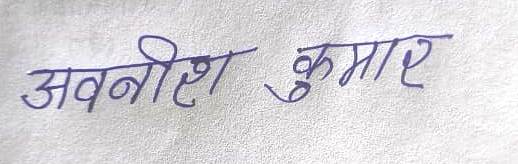 अवनीश कुमार